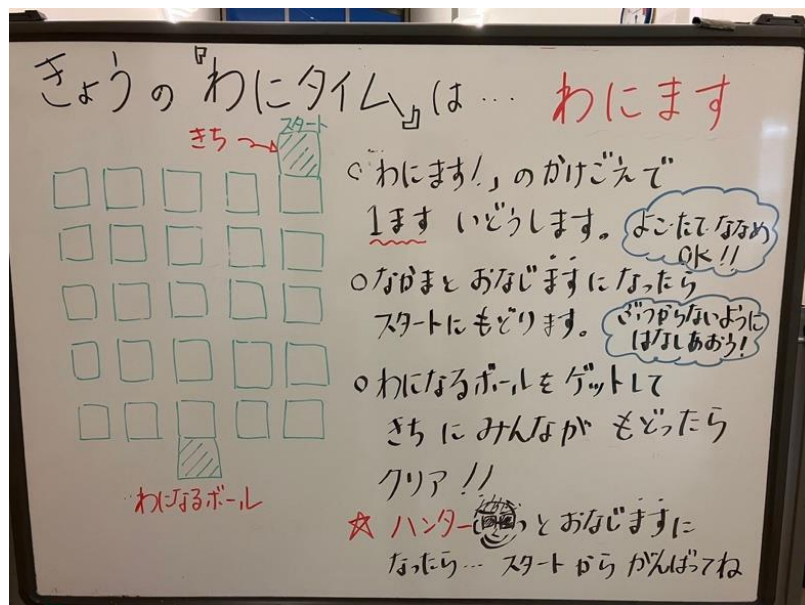 きょうの『わにタイム』は… わにます
スタート
きち→
わになるボール
○「わにます!」のかけごえで
1ます いどうします。
よこ・たて・ななめ
OK!!
○なかまと おなじますに なったら
スタートに もどります。
ぶつからないように
はなしあおう!
○わになるボールを ゲットして
きちに みんなが もどったら
クリア!!
☆ ハンターと おなじますに
なったら… スタートから がんばってね